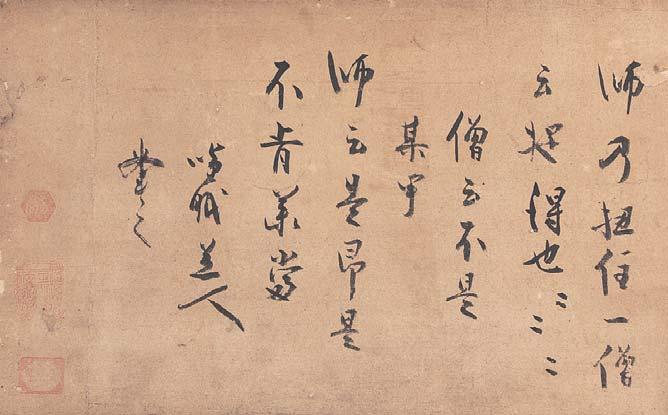 師乃扭住一僧
云捉得也〻〻〻
僧云不是
某甲
師云是即是
不肯承當
道人
書之